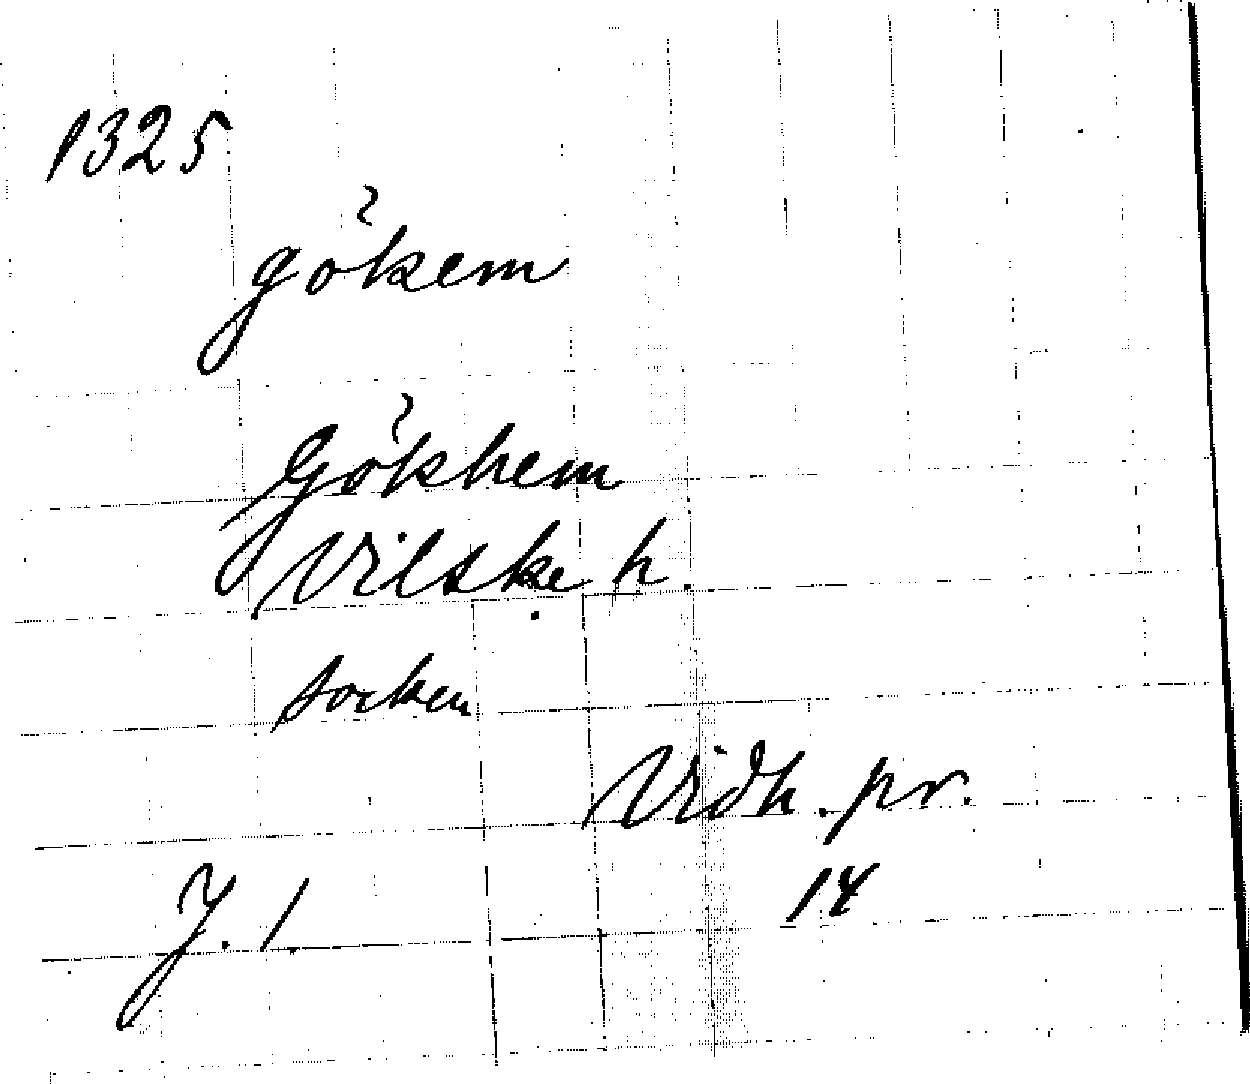 1325
gökem
Gökhem
Vilske h.
socken
Vidh. pr.
J. 1. 14